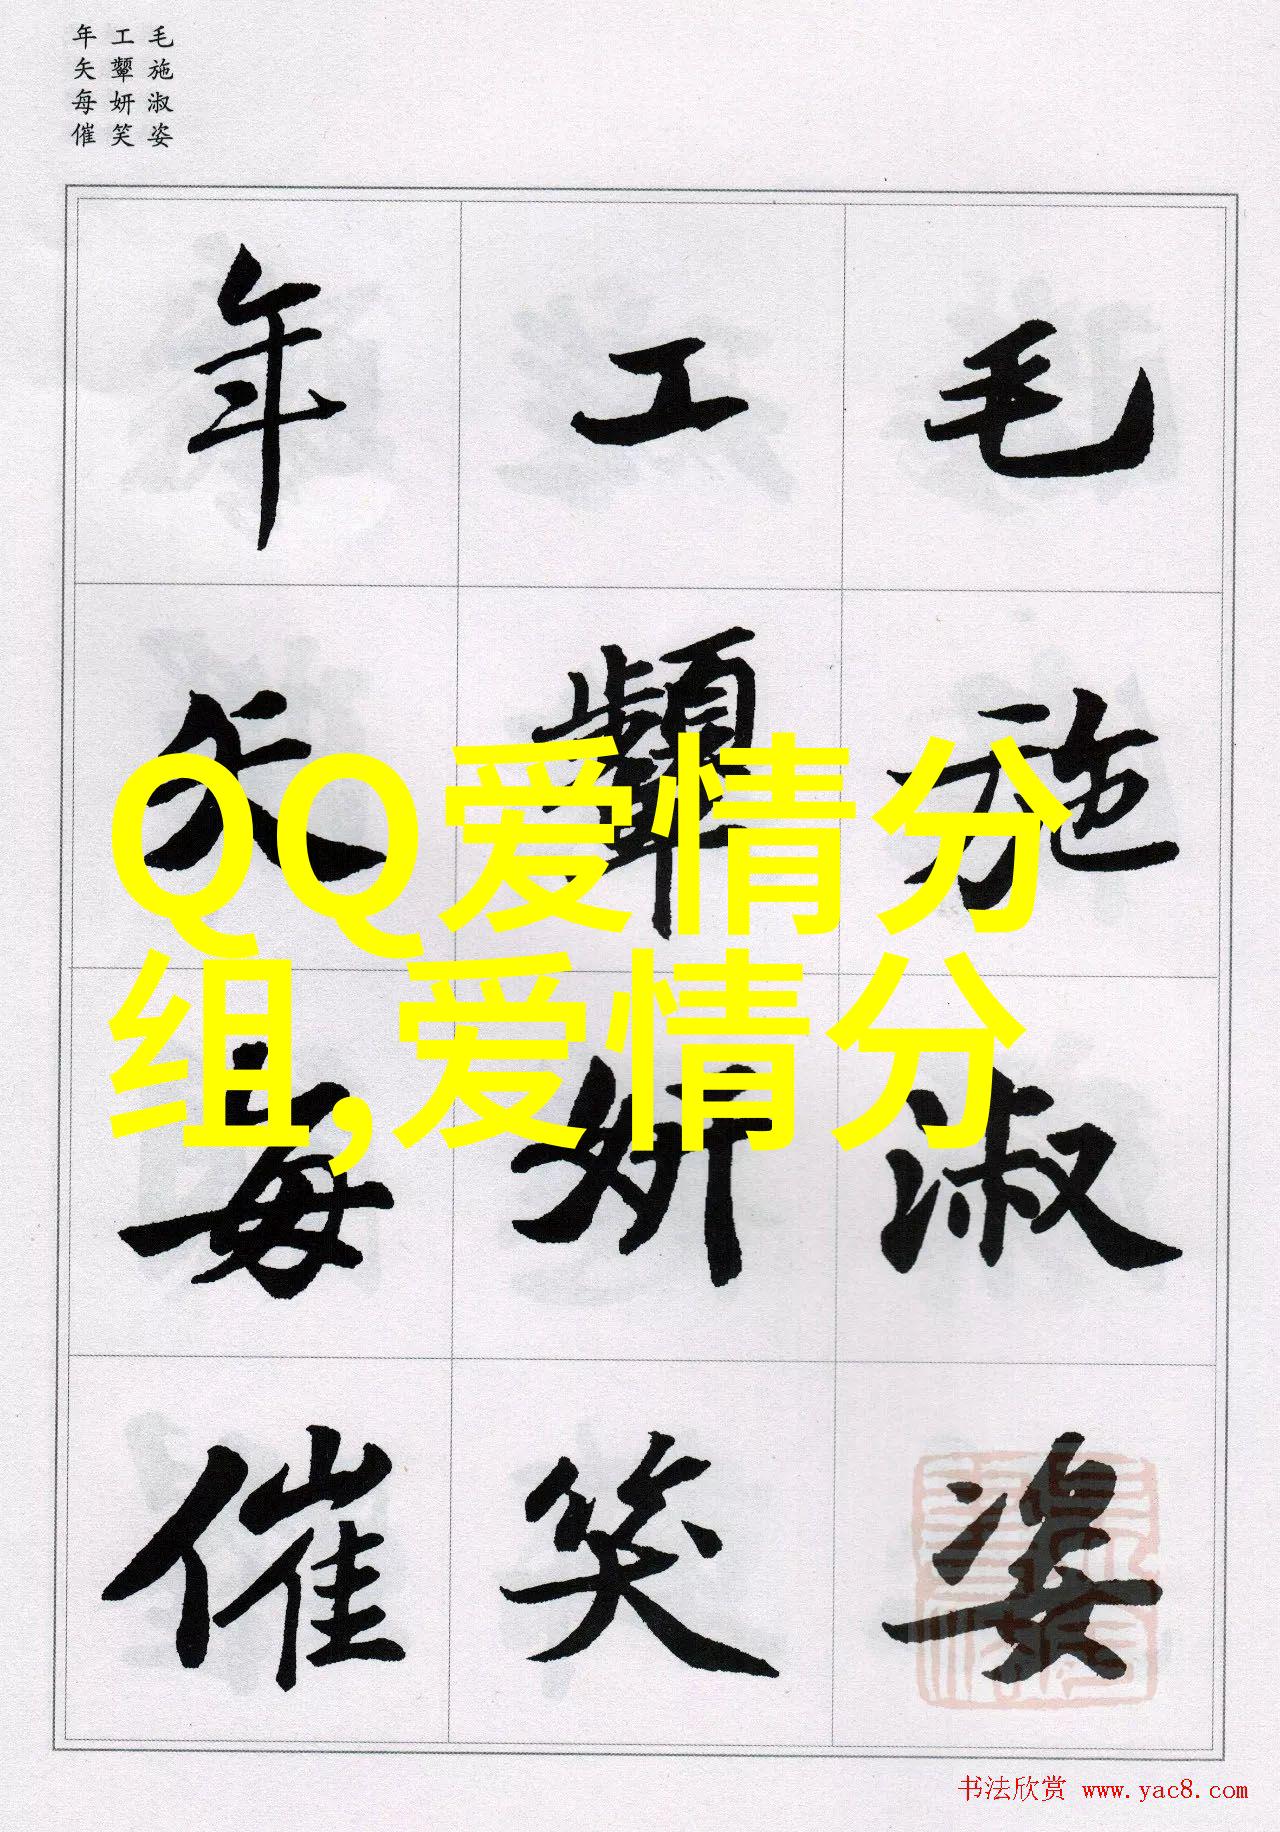 毛施淑姿
工颦妍笑
年矢每催
毛施淑姿
工颦妍笑
年矢每催
QQ爱情分
组,爱情分
书法欣赏 www.yac8.com